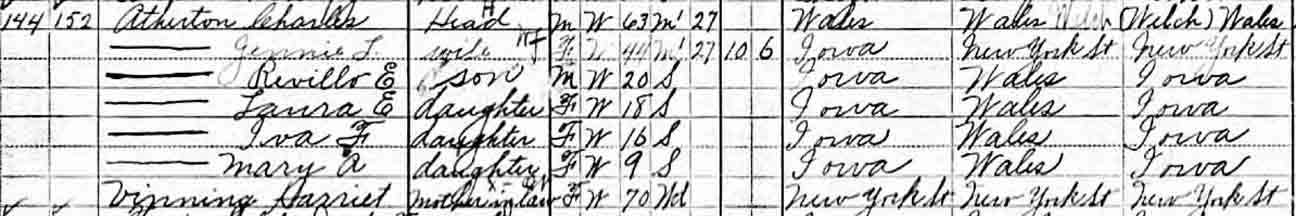 144 152 Atherton Charles Head M W 63 M1 27 Wales Wales Welch (Welch) Wales
Jennie L wife F W 44 M1 27 10 6 Iowa New York St New York St
Revillo E son M W 20 S Iowa Wales Iowa
Laura E daughter F W 18 S Iowa Wales Iowa
Iva F daughter F W 16 S Iowa Wales Iowa
Mary A daughter F W 9 S Iowa Wales Iowa
Vinning Harriet Mother in law F W 70 Wd New York St New York St New York St